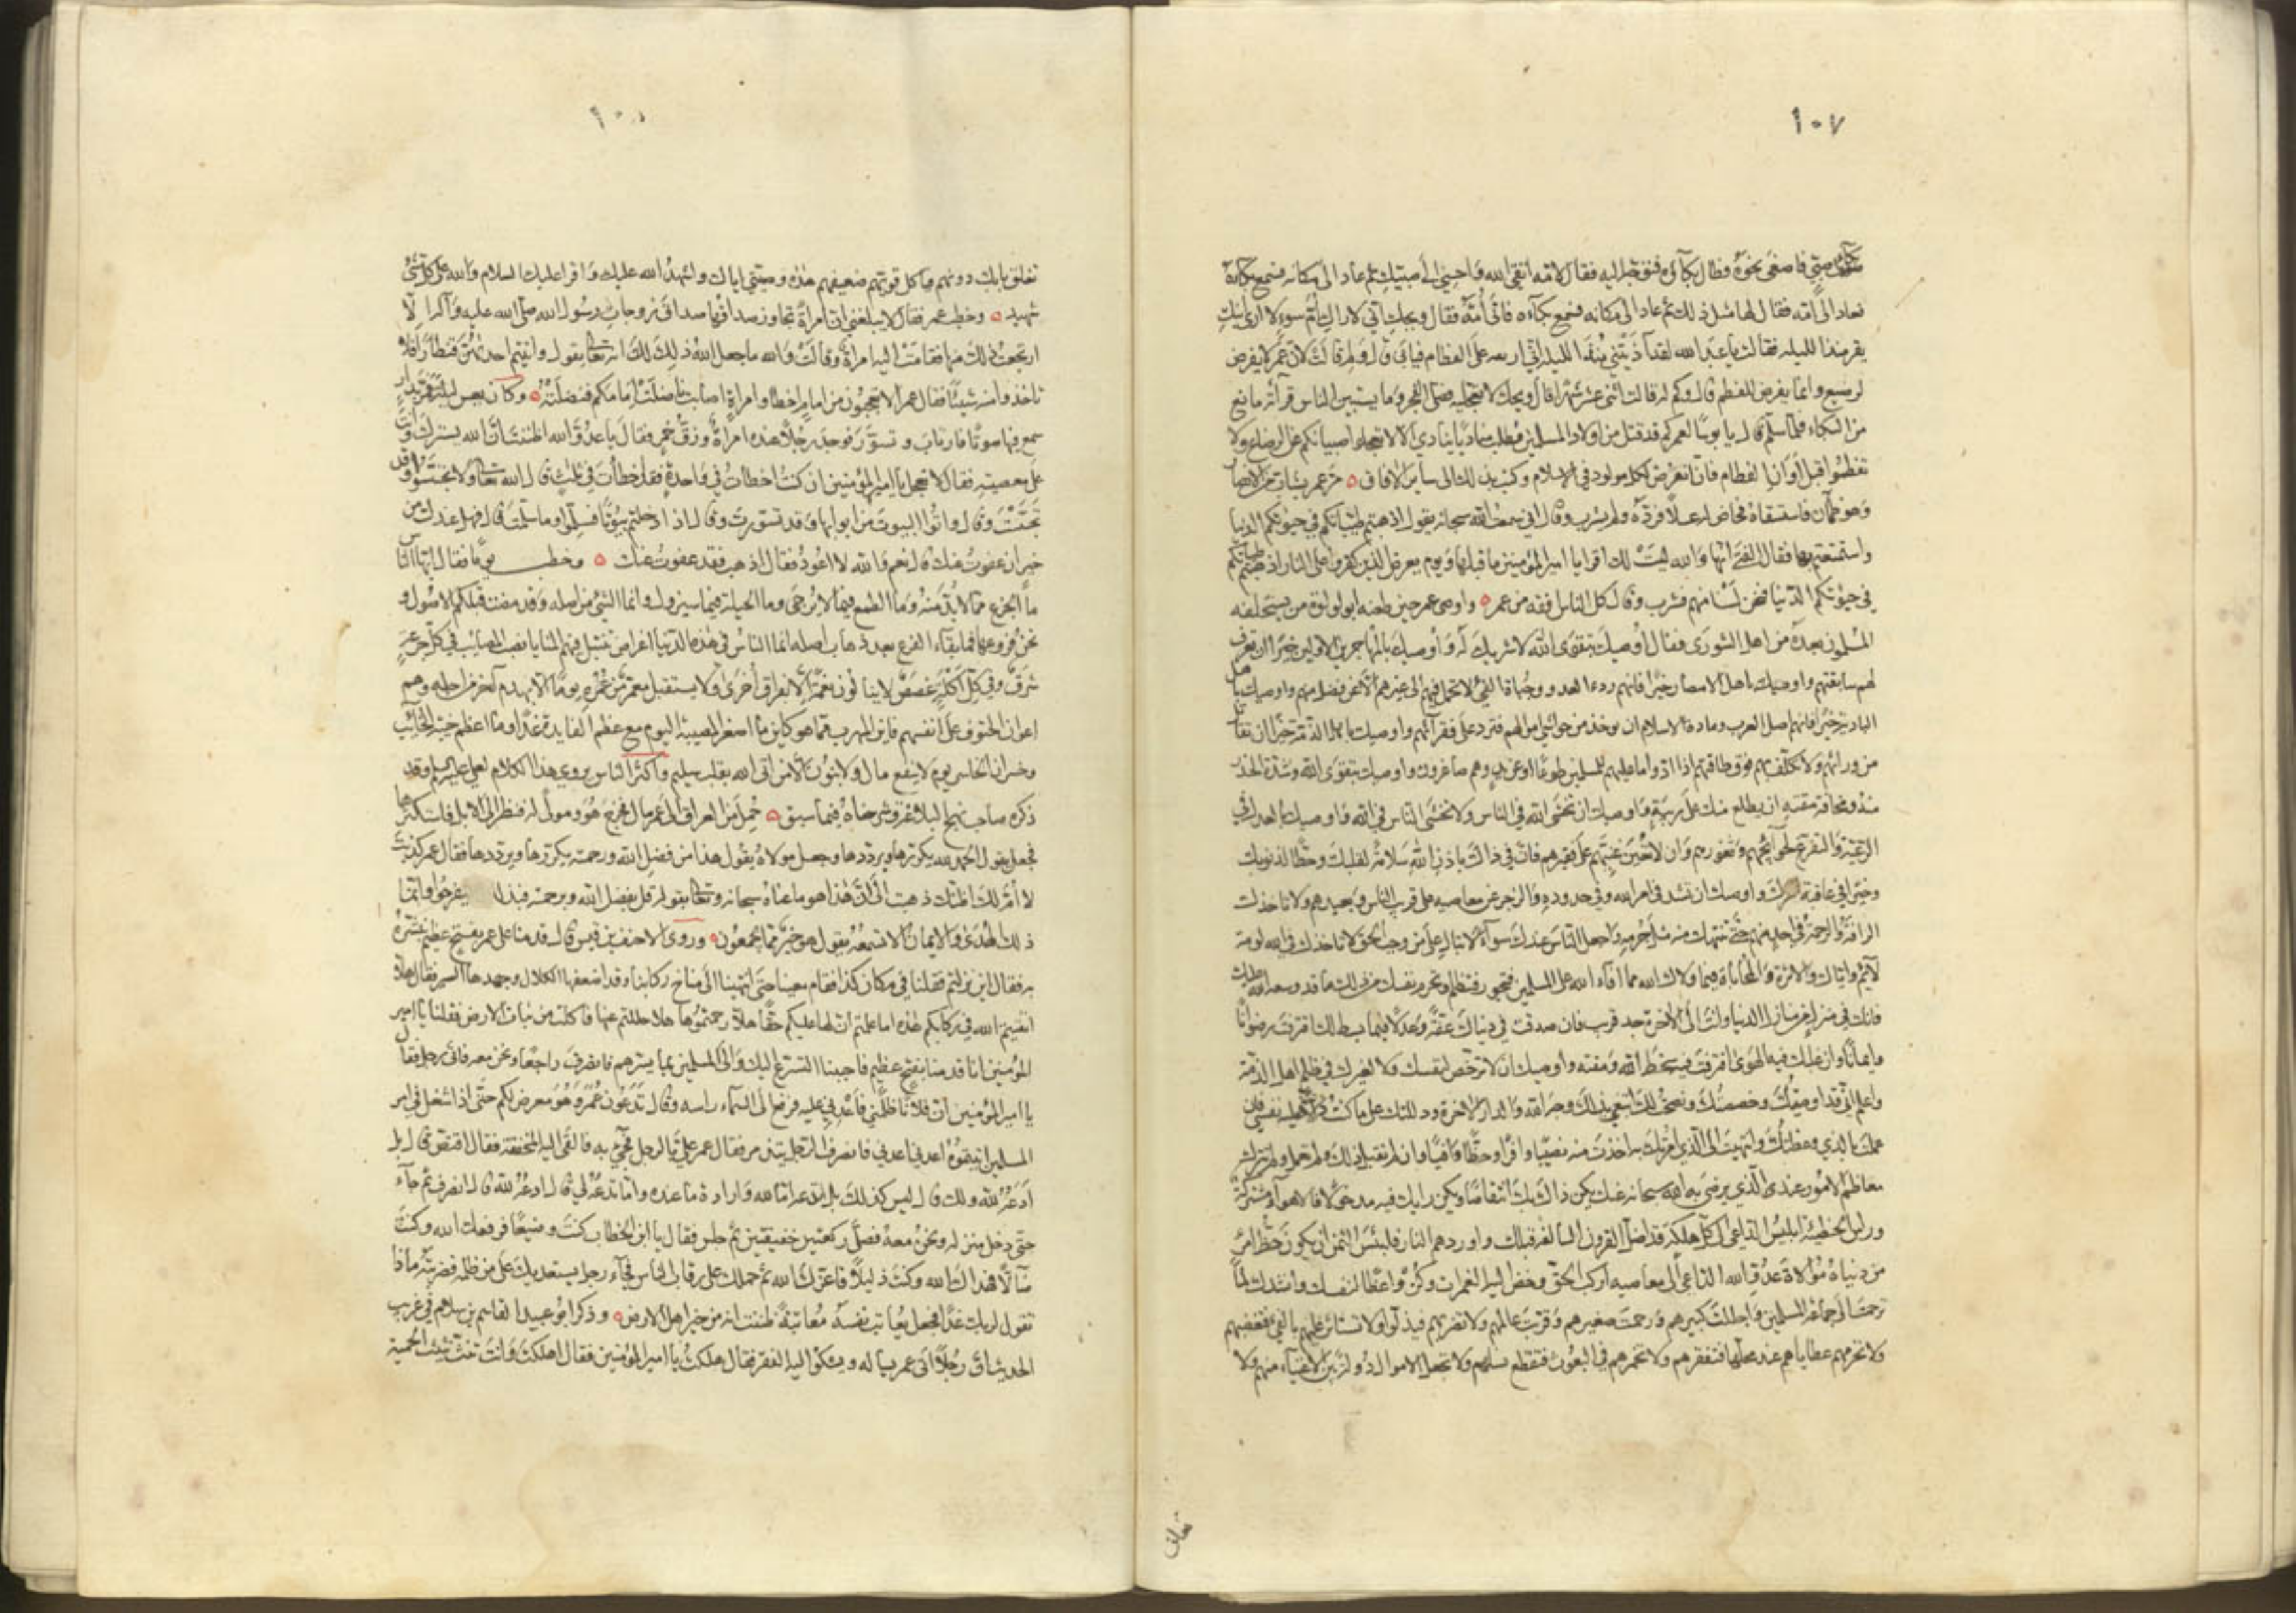 ١٠٧
بكاء صبي فاصغى نحوه فطال بكاؤه فتوجه اليه فقال لامه اتقي الله واحسني الى صبيك ثم عاد الى مكانه فسمع بكاءه
فعاد الى امه فقال لها مثل ذلك ثم عاد الى مكانه فسمع بكاءه فاتى امه فقال ويحك اني لاراك ام سوء لا ارى ابنك
يقر منذ الليلة فقالت يا عبد الله لقد آذيتني منذ الليلة اني اريده على الفطام فيابى قال ولم قالت لان عمر لا يفرض
لرضيع وانما يفرض للفطم قال وكم له قالت اثنى عشر شهرا قال ويحك لا تعجليه فصلى الفجر وما يستبين الناس قراءته ما منع
من البكاء فلما سلم قال يا بؤسا لعمر كم قد قتل من اولاد المسلمين فطلب مناديا ينادي الا لا تعجلوا صبيانكم عن الرضاع ولا
تفطموا قبل اوان الفطام فانا نفرض لكل مولود في الاسلام وكتب بذلك الى سائر الآفاق مر عمر بشاب من الانصار
وهو ظمآن فاستسقاه فخاض له عسلا فرده ولم يشرب وقال اني سمعت الله سبحانه يقول اذهبتم طيباتكم في حيوتكم الدنيا
واستمتعتم بها فقال الفتى انها والله ليست لك اقرا يا امير المؤمنين ما قبلها ويوم يعرض الذين كفروا على النار اذهبتم طيباتكم
في حيوتكم الدنيا فنحن لسنا منهم فشرب وقال كل الناس افقه من عمر واوصى عمر حين طعنه ابو لؤلؤة من يستخلفه
المسلمون بعده من اهل الشورى فقال اوصيك بتقوى الله لا شريك له واوصيك بالمهاجرين الاولين خيرا ان تعرف
لهم سابقتهم واوصيك باهل الامصار خيرا فانهم ردء العدو وجباة الفيء لا تحمل فيئهم الى غيرهم الا عن فضل منهم واوصيك باهل
البادية خيرا فانهم اصل العرب ومادة الاسلام ان يؤخذ من حواشي اموالهم فترد على فقرائهم واوصيك باهل الذمة خيرا ان تقاتل
من ورائهم ولا تكلفهم فوق طاقتهم اذا ادوا ما عليهم للمسلمين طوعا او عن يد وهم صاغرون واوصيك بتقوى الله وشدة الحذر
منه ومخافة مقته ان يطلع منك على ريبة واوصيك ان تخشى الله في الناس ولا تخشى الناس في الله واوصيك بالعدل في
الرعية والتفرغ لحوائجهم وثغورهم وان لا تعين غنيهم على فقيرهم فان في ذلك باذن الله سلامة لقلبك وحطا لذنوبك
وخيرا في عاقبة امرك واوصيك ان تشد في امر الله وفي حدوده والزجر عن معاصيه على قريب الناس وبعيدهم ولا تاخذك
الرافة والرحمة في احد منهم حتى تنتهك منه مثل جرمه واجعل الناس عندك سواء لا تبال على من وجب الحق لا تاخذك في الله لومة
لائم واياك والاثرة والمحاباة فيما ولاك الله مما افاء الله على المسلمين فتجور وتظلم وتحرم نفسك من ذلك ما قد وسعه الله عليك
فانك في منزلة من منازل الدنيا وانت الى الاخرة جد قريب فان صدقت في دنياك عفة وعدلا فيما بسط لك اقترفت رضوانا
وايمانا وان غلبك فيه الهوى اقترفت فيه سخط الله ومقته واوصيك ان لا ترخص لنفسك ولا لغيرك في ظلم اهل الذمة
واعلم اني قد اوصيتك وخصصتك ونصحت لك ابتغي بذلك وجه الله والدار الاخرة ودللتك على ما كنت دالا عليه نفسي فان
عملت بالذي وعظتك وانتهيت الى الذي امرتك به اخذت منه نصيبا وافرا وحظا وافيا وان لم تقبل ذلك ولم تعمل ولم تترك
معاظم الامور عند الذي يرضى به الله سبحانه عنك يكن ذاك بك انتقاصا ويكن رايك فيه مدخولا فالاهواء مشتركة
وراس الخطيئة ابليس الداعي الى كل هلكة قد اضل القرون السالفة قبلك واوردهم النار فلبئس الثمن ان يكون حظ امرئ
من دنياه موالاة عدو الله الداعي الى معاصيه اركب الحق وخض اليه الغمرات وكن واعظا لنفسك وانشدك لما
ترحمت الى جماعة المسلمين واجللت كبيرهم ورحمت صغيرهم وقربت عالمهم ولا تضربهم فيذلوا ولا تستاثر عليهم بالفيء فتغضبهم
ولا تحرمهم عطاياهم عند محلها فتفقرهم ولا تجمرهم في البعوث فتقطع نسلهم ولا تجعل الاموال دولة بين الاغنياء منهم ولا
تغلق
١٠٨
تغلق بابك دونهم فياكل قويهم ضعيفهم هذه وصيتي اياك واشهد الله عليك واقرا عليك السلام والله على كل شيء
شهيد وخطب عمر فقال لا يبلغني ان امراة تجاوز صداقها صداق زوجات رسول الله صلى الله عليه وآله الا
ارتجعت ذلك منها فقامت اليه امراة وقالت والله ما جعل الله ذلك لك انه تعالى يقول وآتيتم احديهن قنطارا فلا
تاخذوا منه شيئا فقال عمر الا تعجبون من امام اخطا وامراة اصابت ناضلت امامكم فنضلته وكان يعس ليلة فمر بدار
سمع فيها صوتا فارتاب وتسور فوجد رجلا عنده امراة وزق خمر فقال يا عدو الله اظننت ان الله يسترك وانت
على معصيته فقال لا تعجل يا امير المؤمنين ان كنت اخطات في واحدة فقد اخطات في ثلث قال الله تعالى ولا تجسسوا وقد
تجسست وقال واتوا البيوت من ابوابها وقد تسورت وقال اذا دخلتم بيوتا فسلموا وما سلمت قال فهل عندك من
خير ان عفوت عنك قال نعم والله لا اعود فقال اذهب فقد عفوت عنك وخطب يوما فقال ايها الناس
ما الجزع مما لا بد منه وما الطمع فيما لا يرجى وما الحيلة فيما سيزول وانما الشيء من اصله وقد مضت قبلكم الاصول و
نحن فروعها فما بقاء الفرع بعد ذهاب اصله انما الناس في هذه الدنيا اغراض تنتبل فيهم المنايا نصب المصائب في كل جرعة
شرق وفي كل اكلة غصص لا ينالون نعمة الا بفراق اخرى ولا يستقبل معمر من عمره يوما الا بهدم آخر من اجله وهم
اعوان الحتوف على انفسهم فاين المهرب مما هو كاين ما اصغر المصيبة اليوم مع عظم الفايدة غدا وما اعظم خيبة الخائب
وخسران الخاسر يوم لا ينفع مال ولا بنون الا من اتى الله بقلب سليم واكثر الناس يروي هذا الكلام لعلي عليه السلم وقد
ذكره صاحب نهج البلاغة وشرحناه فيما سبق حمل من العراق الى عمر مال فخرج هو ومولى له فنظر الى الابل فاستكثرها
فجعل يقول الحمد لله يكررها ويرددها وجعل مولاه يقول هذا من فضل الله ورحمته يكررها ويرددها فقال عمر كذبت
لا ام لك اظنك ذهبت الى ان هذا هو ما عناه سبحانه وتعالى بقوله قل بفضل الله وبرحمته فبذلك فليفرحوا وانما
ذلك الهدى والايمان الا تسمعه يقول هو خير مما يجمعون وروى الاحنف بن قيس قال قدمنا على عمر بفتح عظيم نبشره
به فقال اين نزلتم فقلنا في مكان كذا فقام معنا حتى انتهينا الى مناخ ركابنا وقد اضعفها الكلال وجهدها السير فقال هلا
اتقيتم الله في ركابكم هذه اما علمتم ان لها عليكم حقا هلا رحمتموها هلا حللتم عنها فاكلت من نبات الارض فقلنا يا امير
المؤمنين انا قدمنا بفتح عظيم فاحببنا التسرع اليك والى المسلمين بما يسرهم فانصرف راجعا ونحن معه فاتى رجل فقال
يا امير المؤمنين ان فلانا ظلمني فاعدني عليه فرفع الى السماء راسه وقال تدعون عمر وهو معرض لكم حتى اذا شغل في امر
المسلمين اتيتموه اعدني اعدني فانصرف الرجل يتذمر فقال عمر علي بالرجل فجيء به فالقى اليه المخفقة فقال اقتص قال بل
ادعه لله ولك قال ليس كذلك بل تدعه اما لله وارادة ما عنده واما تدعه لي قال ادعه لله قال انصرف ثم جاء
حتى دخل منزله ونحن معه فصلى ركعتين خفيفتين ثم جلس فقال يا ابن الخطاب كنت وضيعا فرفعك الله وكنت
ضالا فهداك الله وكنت ذليلا فاعزك الله ثم حملك على رقاب الناس فجاء رجل يستعديك على من ظلمه فضربته ماذا
تقول لربك غدا فجعل يعاتب نفسه معاتبة ظننت انه من خير اهل الارض وذكر ابو عبيد القاسم بن سلام في غريب
الحديث ان رجلا اتى عمر يساله ويشكو اليه الفقر فقال هلكت يا امير المؤمنين فقال اهلكت وانت تنث نثيث الحميت